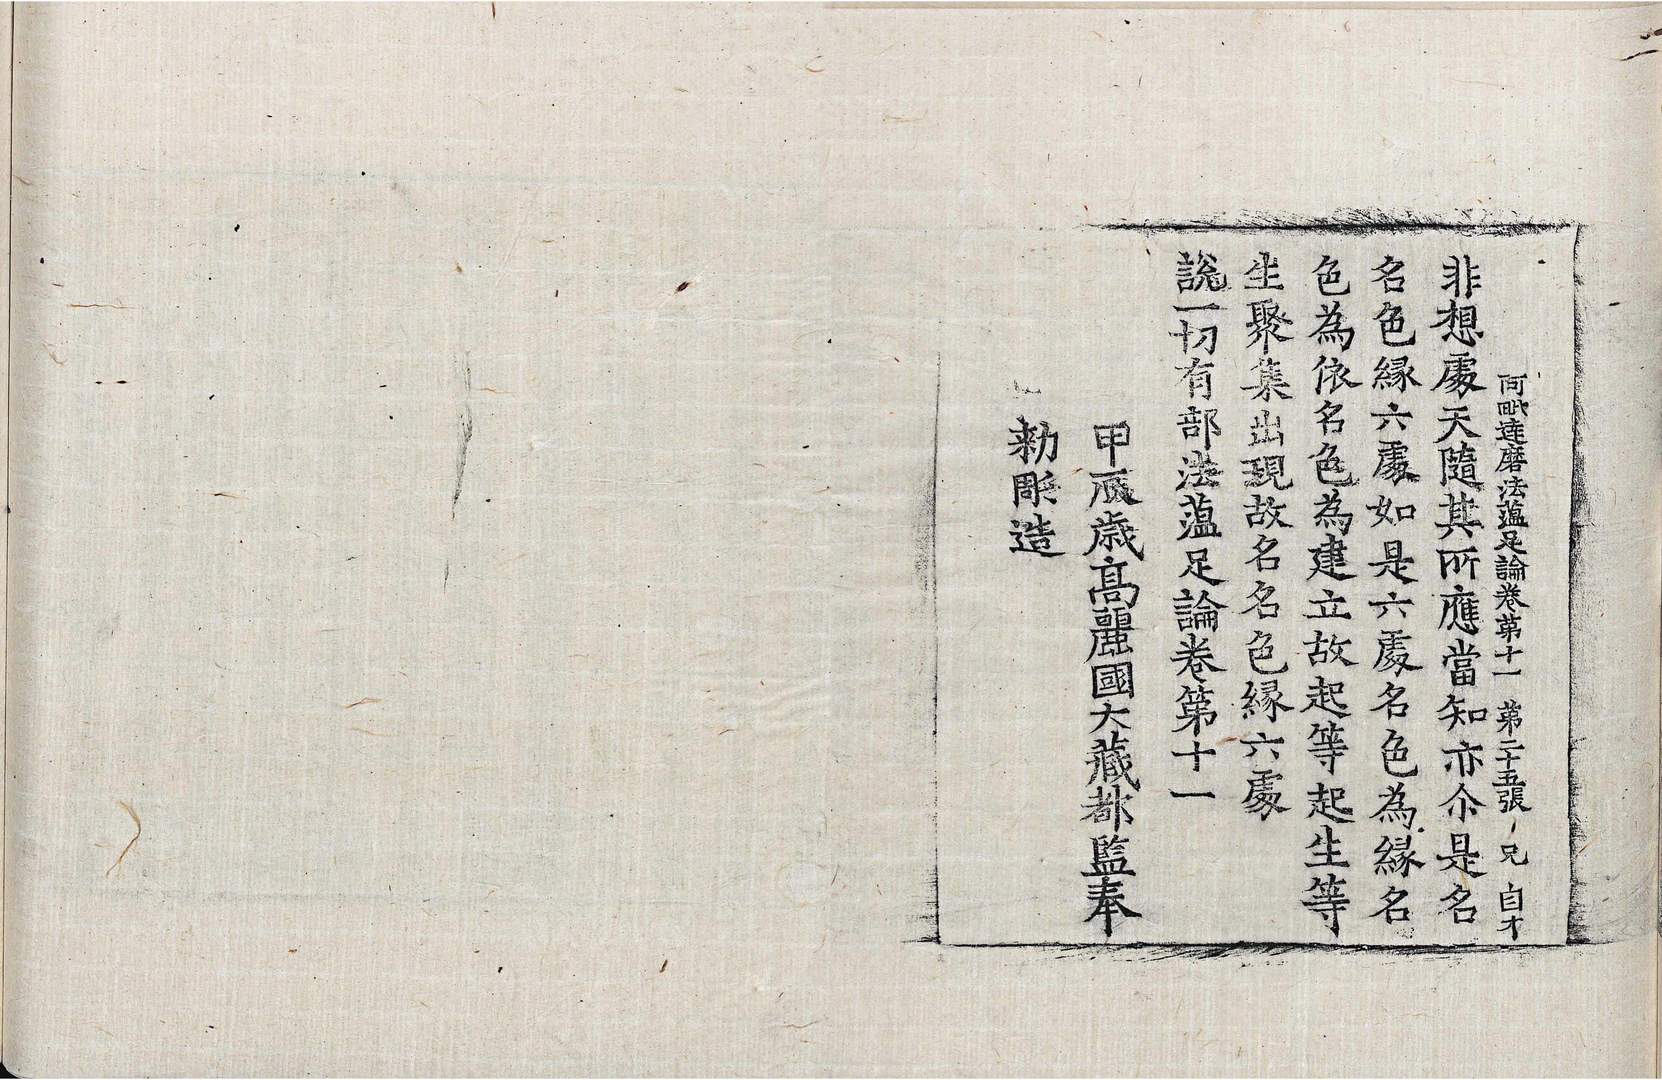 阿毗達磨法蘊足論卷第十一 第二十五張 兄 自才
非想處天隨其所應當知亦尒是名
名色緣六處如是六處名色為緣名
色為依名色為建立故起等起生等
生聚集出現故名名色緣六處
說一切有部法蘊足論卷第十一
甲辰歲高麗國大藏都監奉
勑彫造